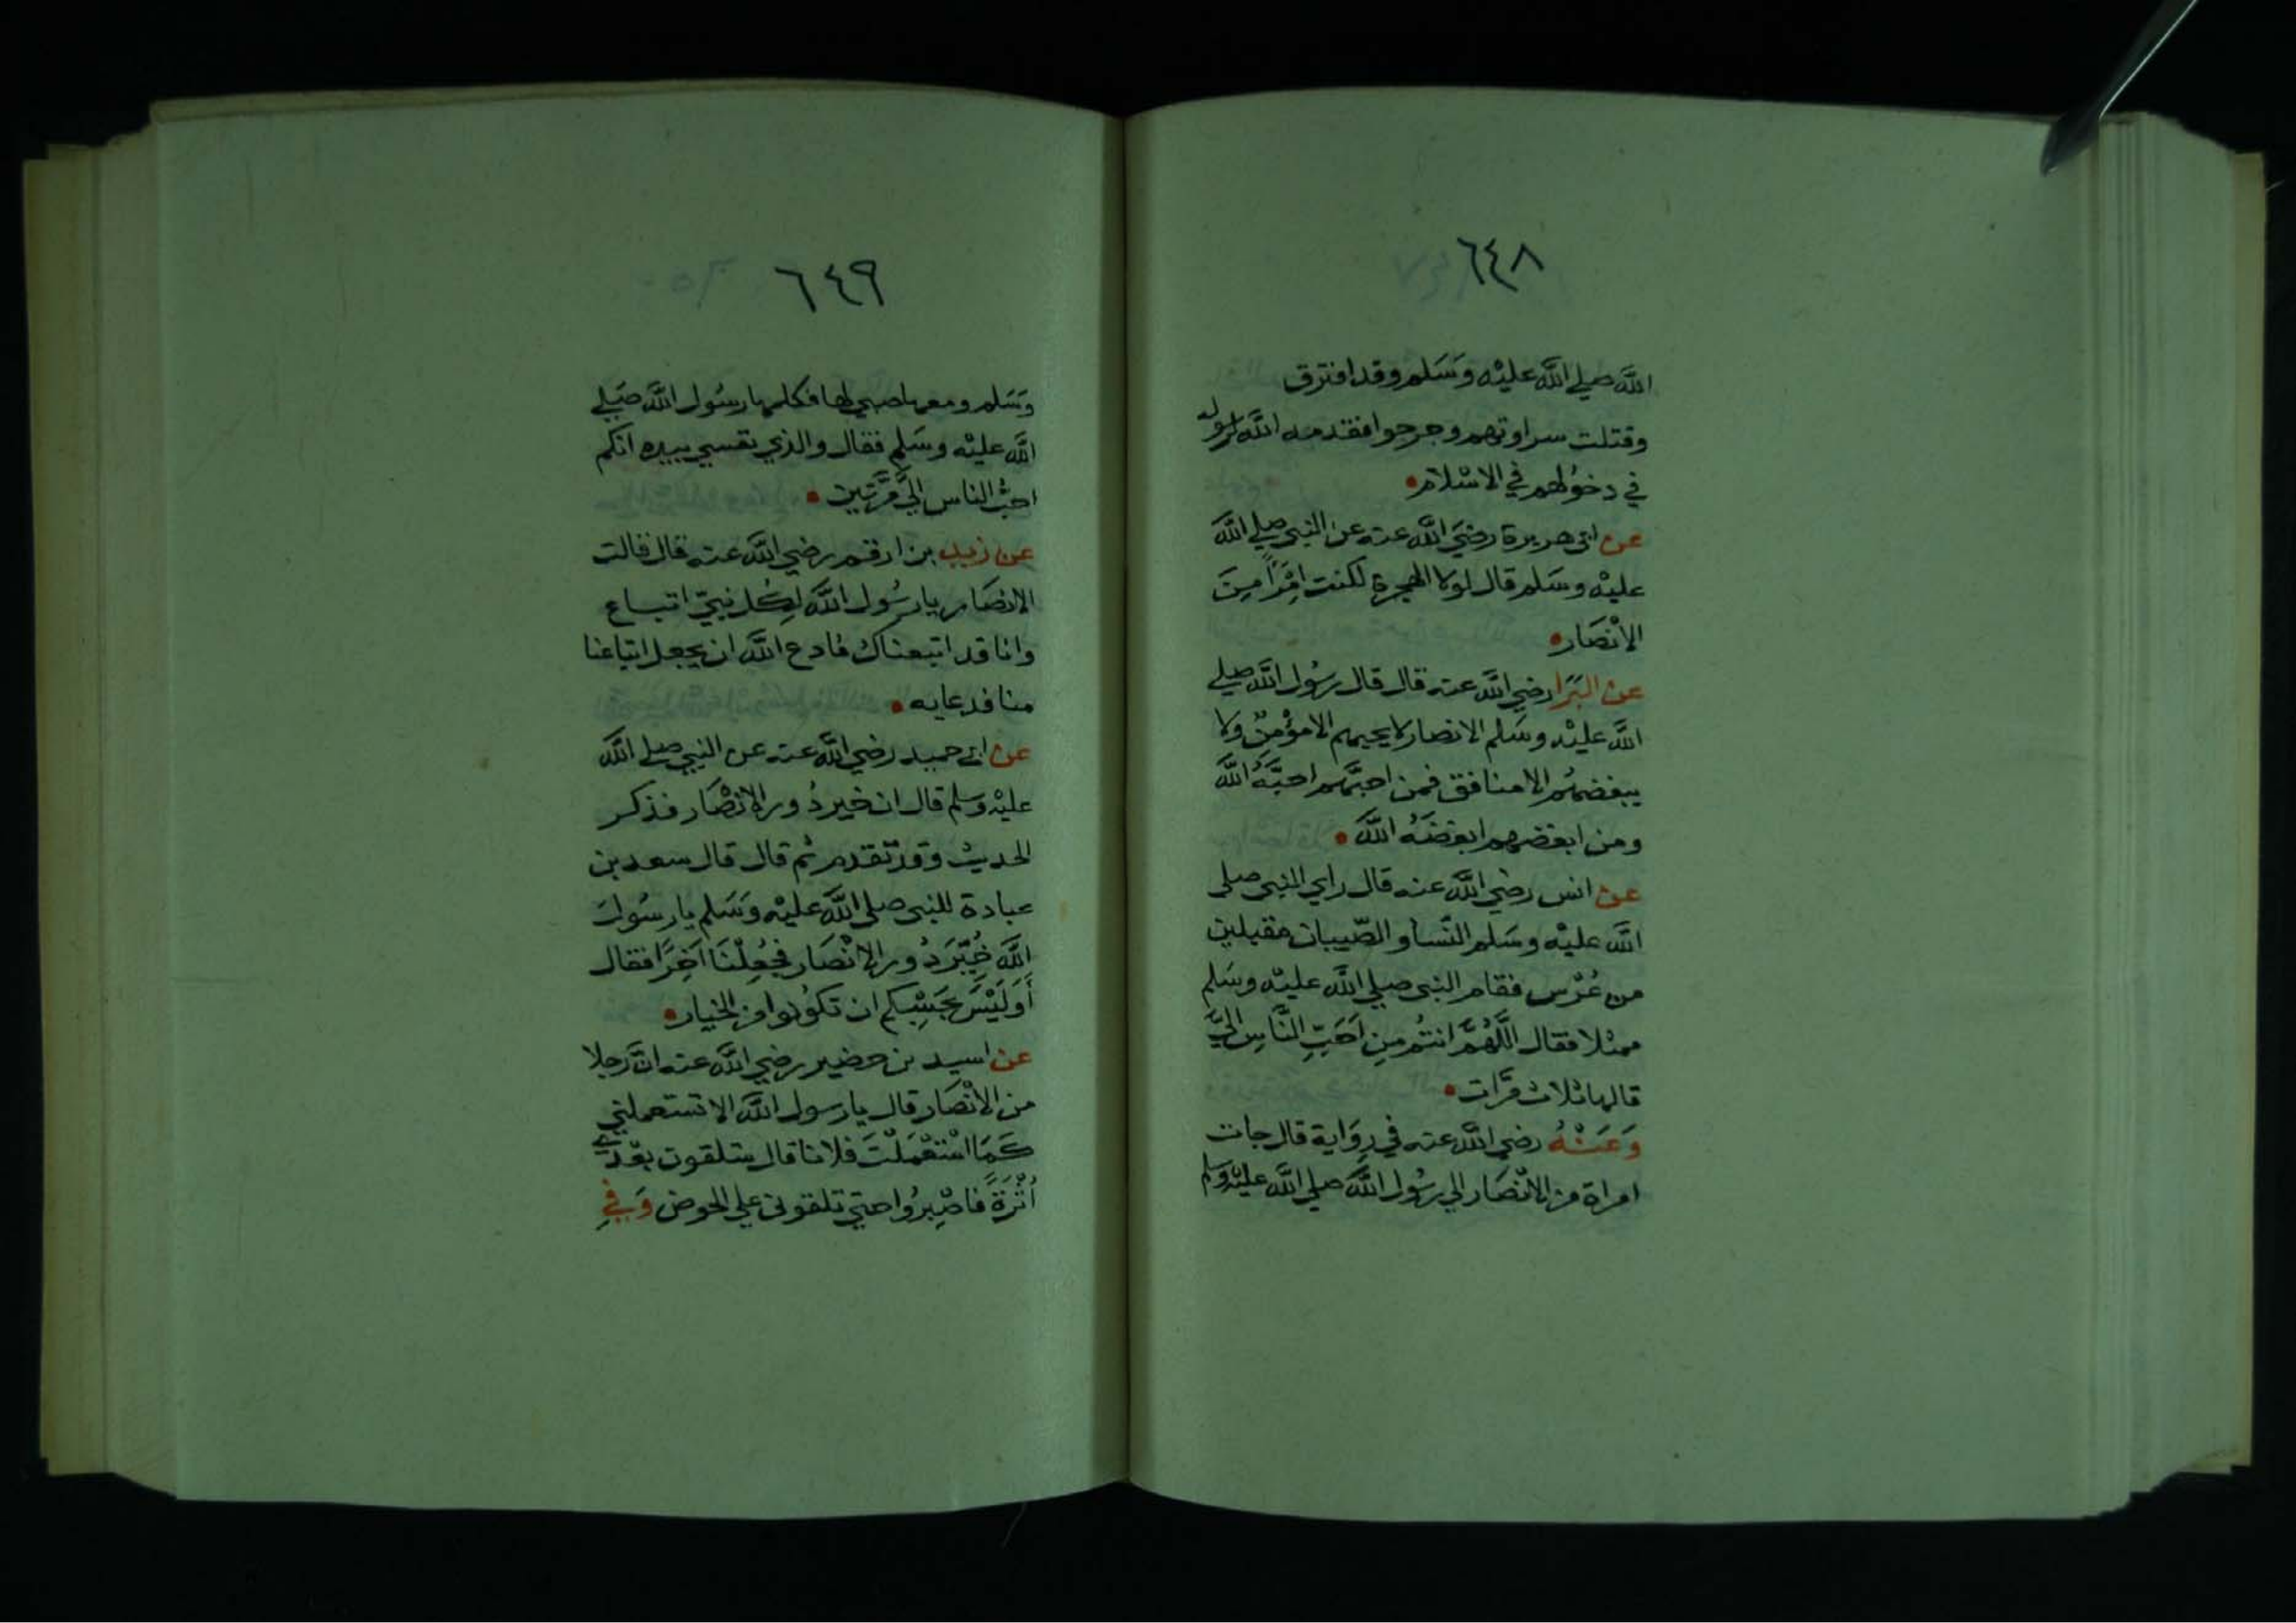 ٦٤٨
الله صلي الله عليه وسلم وقد افترق
وقتلت سراوتهم وجرحوا فقدمه الله لرسوله
في دخولهم في الاسْلام
عن ابي هريرة رضيَ الله عنه عن النبي صلي الله
عليْه وسَلم قال لولا الهجرة لكنت امْرَاً مِنَ
الانْصَار
عن البَرَا رضي الله عنه قال قال رسُول الله صلي
الله عليْه وسَلم الانصار لا يحبهم الا مؤْمِنٌ ولا
يبغضهُم الا منافق فمن احبَّهم احبَّهُ الله
ومن ابغضهم ابغضَهُ الله
عن انس رضي الله عنه قال راي النبي صلي
الله عليْه وسَلم النّسا والصّبيان مقبلين
من عُرْس فقام النبي صلي الله عليْه وسَلم
ممثلا فقال اللَّهُمَّ انتُم مِن اَحَبِّ النَّاسِ اليَّ
قالها ثلاث مرَّات
وَعَنْهُ رضي الله عنه في رِوَاية قال جات
امراة من الانْصَار الي رسُول الله صلي الله عليْه وَسلم
٦٤٩
وَسَلم ومعها صبي لها فكلمها رسُول الله صَلي
الله عليْه وسَلم فقال والذي نفسي بيده انكم
احبُّ الناس اليَّ مَرَّتين
عن زيد بن ارقم رضي الله عنه قال قالت
الانصَار يا رسُول الله لِكُل نبيّ اتباع
وانا قد اتبعناك فادع الله ان يجعل اتباعنا
منا فدعا به
عن ابي حميد رضي الله عنه عن النبي صلي الله
عليْه وَسلم قال ان خير دُور الانصَار فذكر
الحديث وقد تقدم ثم قال قال سعد بن
عبادة للنبي صلي الله عليْه وَسَلم يا رسُولَ
الله خُيِّرَ دُور الانْصَار فجُعِلْنَا آخِرًا فقال
أَوَلَيْسَ بحَسْبِكم ان تكونوا من الخيار
عن اسيد بن حضير رضي الله عنه ان رجلا
من الانْصَار قال يا رسول الله الا تستعملني
كَمَا اسْتَعْمَلْتَ فلانا قال ستلقون بعْدي
أُثْرَةً فَاصْبِرُوا حتي تلقوني علي الحوض وَفي